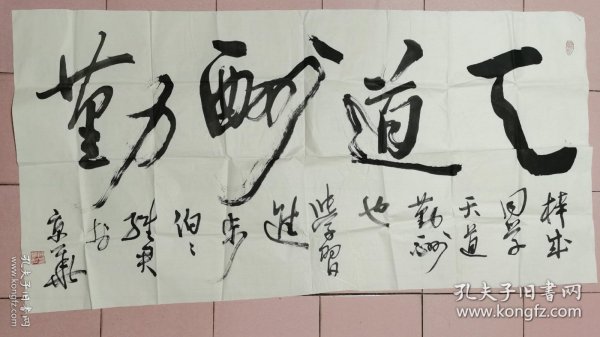 天道酬勤
梓成
同学
天道
勤酬
也
学习
进
步
伯〻
于
京华
孔夫子旧书网
www.kongfz.com
孔夫子旧书网
www.kongfz.com